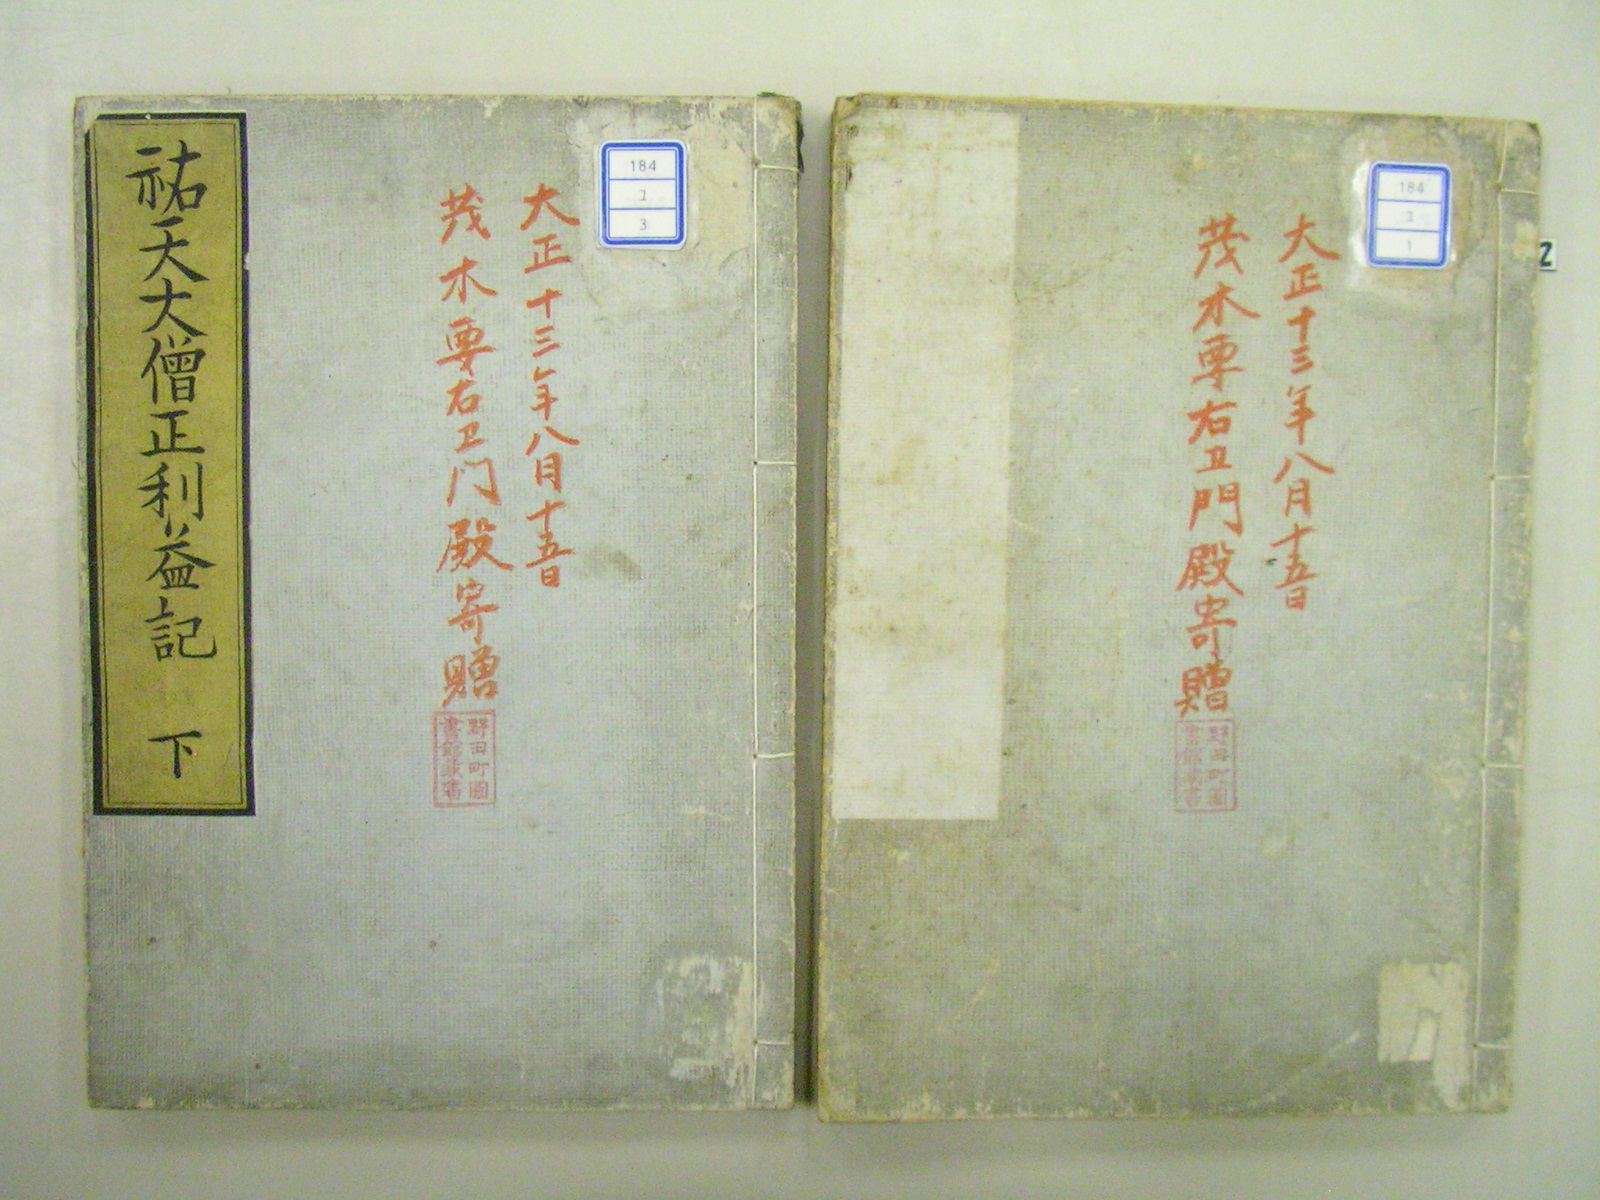 祐天大僧正利益記 下
184
3
大正十三年八月十五日
茂木要右卫门殿寄贈
野田町圖
書館藏書
184
1
大正十三年八月十五日
茂木要右卫門殿寄贈
野田町圖
書館藏書
2